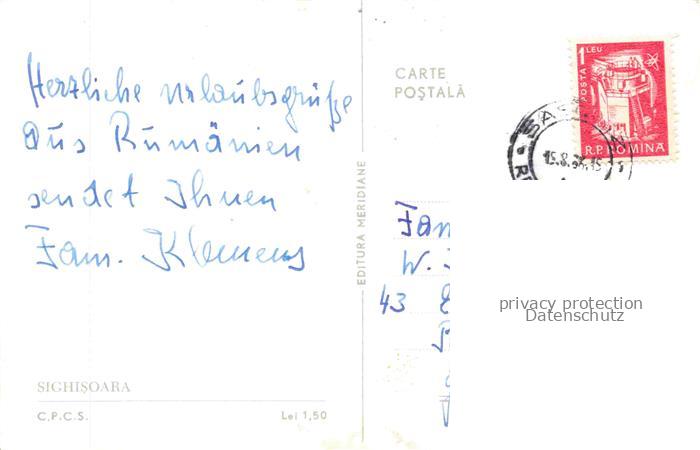 Herzliche Urlaubsgrüße
Aus Rumänien
sendet Ihnen
Fam. Klemens
SIGHIȘOARA
C.P.C.S. Lei 1,50
EDITURA MERIDIANE
CARTE
POȘTALĂ
1 LEU
POSTA
R.P.ROMINA
Fam
W.
43
privacy protection
Datenschutz